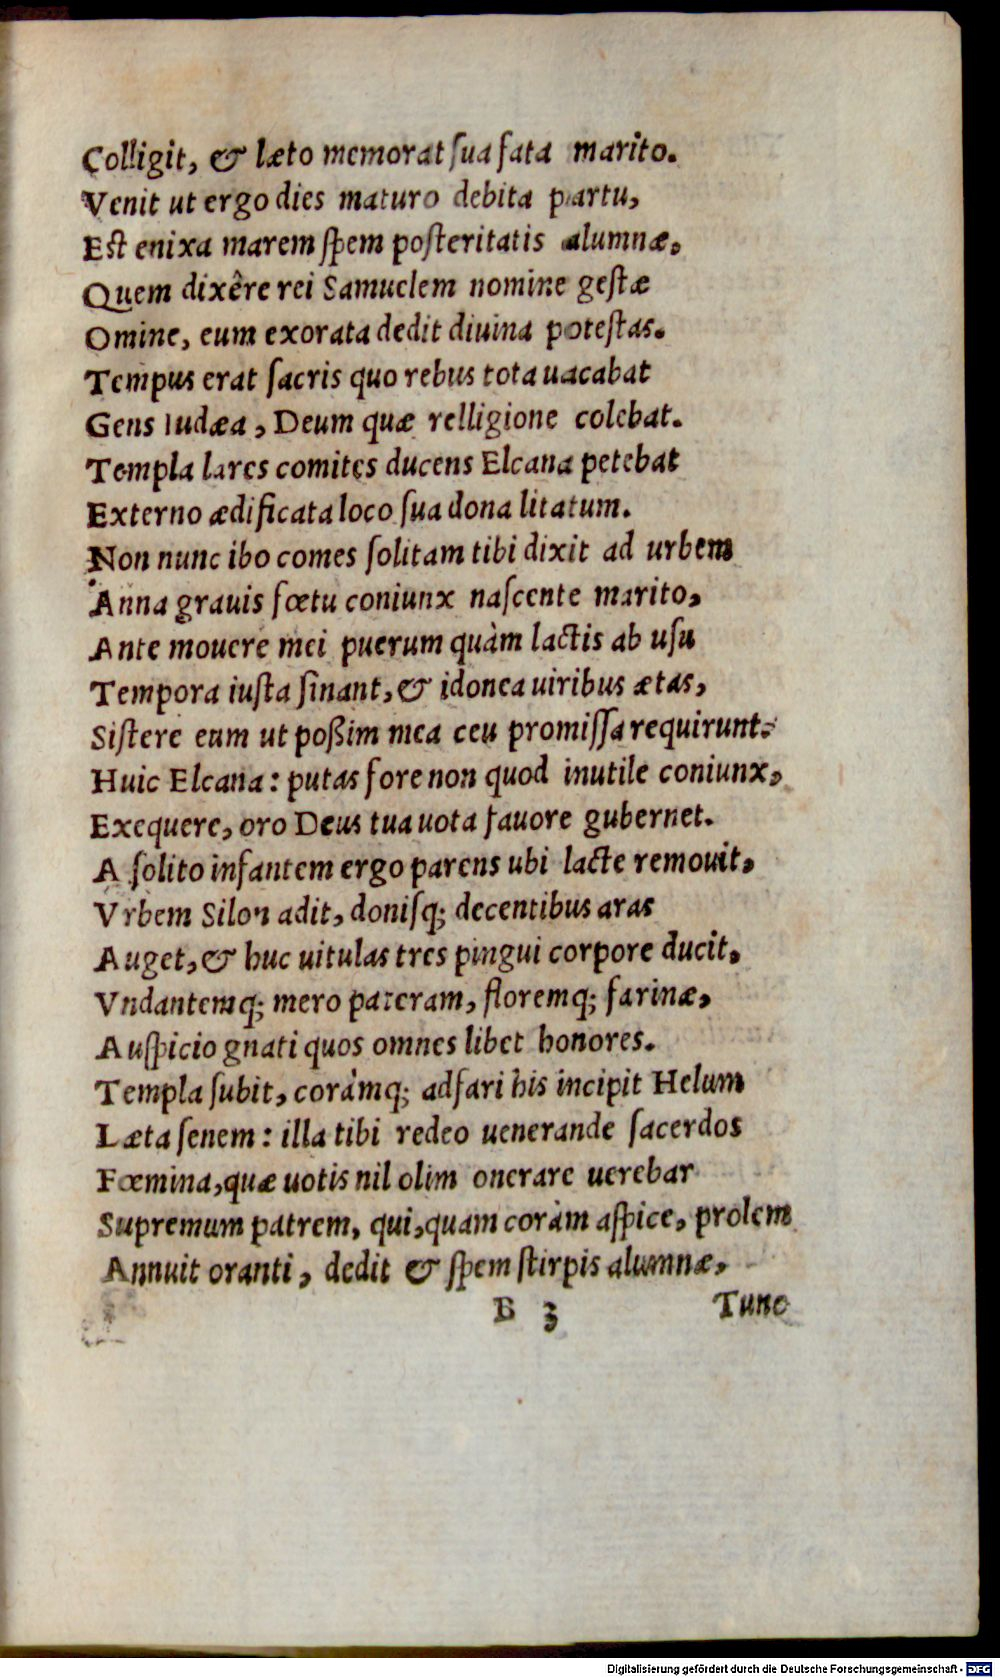 Colligit, & læto memorat ſua fata marito.
Venit ut ergo dies maturo debita partu,
Eſt enixa marem ſpem poſteritatis alumnæ.
Quem dixêre rei Samuelem nomine geſtæ
Omine, eum exorata dedit diuina poteſtas.
Tempus erat ſacris quo rebus tota uacabat
Gens Iudæa, Deum quæ relligione colebat.
Templa lares comites ducens Elcana petebat
Externo ædificata loco ſua dona litatum.
Non nunc ibo comes ſolitam tibi dixit ad urbem
Anna grauis fœtu coniunx naſcente marito,
Ante mouere mei puerum quàm lactis ab uſu
Tempora iuſta ſinant, & idonea uiribus ætas,
Siſtere eum ut poßim mea ceu promiſſa requirunt.
Huic Elcana: putas fore non quod inutile coniunx,
Exequere, oro Deus tua uota fauore gubernet.
A ſolito infantem ergo parens ubi lacte remouit,
Vrbem Silon adit, doniſq; decentibus aras
Auget, & huc uitulas tres pingui corpore ducit.
Vndantemq; mero pateram, floremq; farinæ,
Auſpicio gnati quos omnes libet honores.
Templa ſubit, coràmq; adfari his incipit Helum
Læta ſenem: illa tibi redeo uenerande ſacerdos
Fœmina, quæ uotis nil olim onerare uerebar
Supremum patrem, qui, quam coràm aſpice, prolem
Annuit oranti, dedit & ſpem ſtirpis alumnæ,
B 3 Tunc
Digitalisierung gefördert durch die Deutsche Forschungsgemeinschaft - DFG